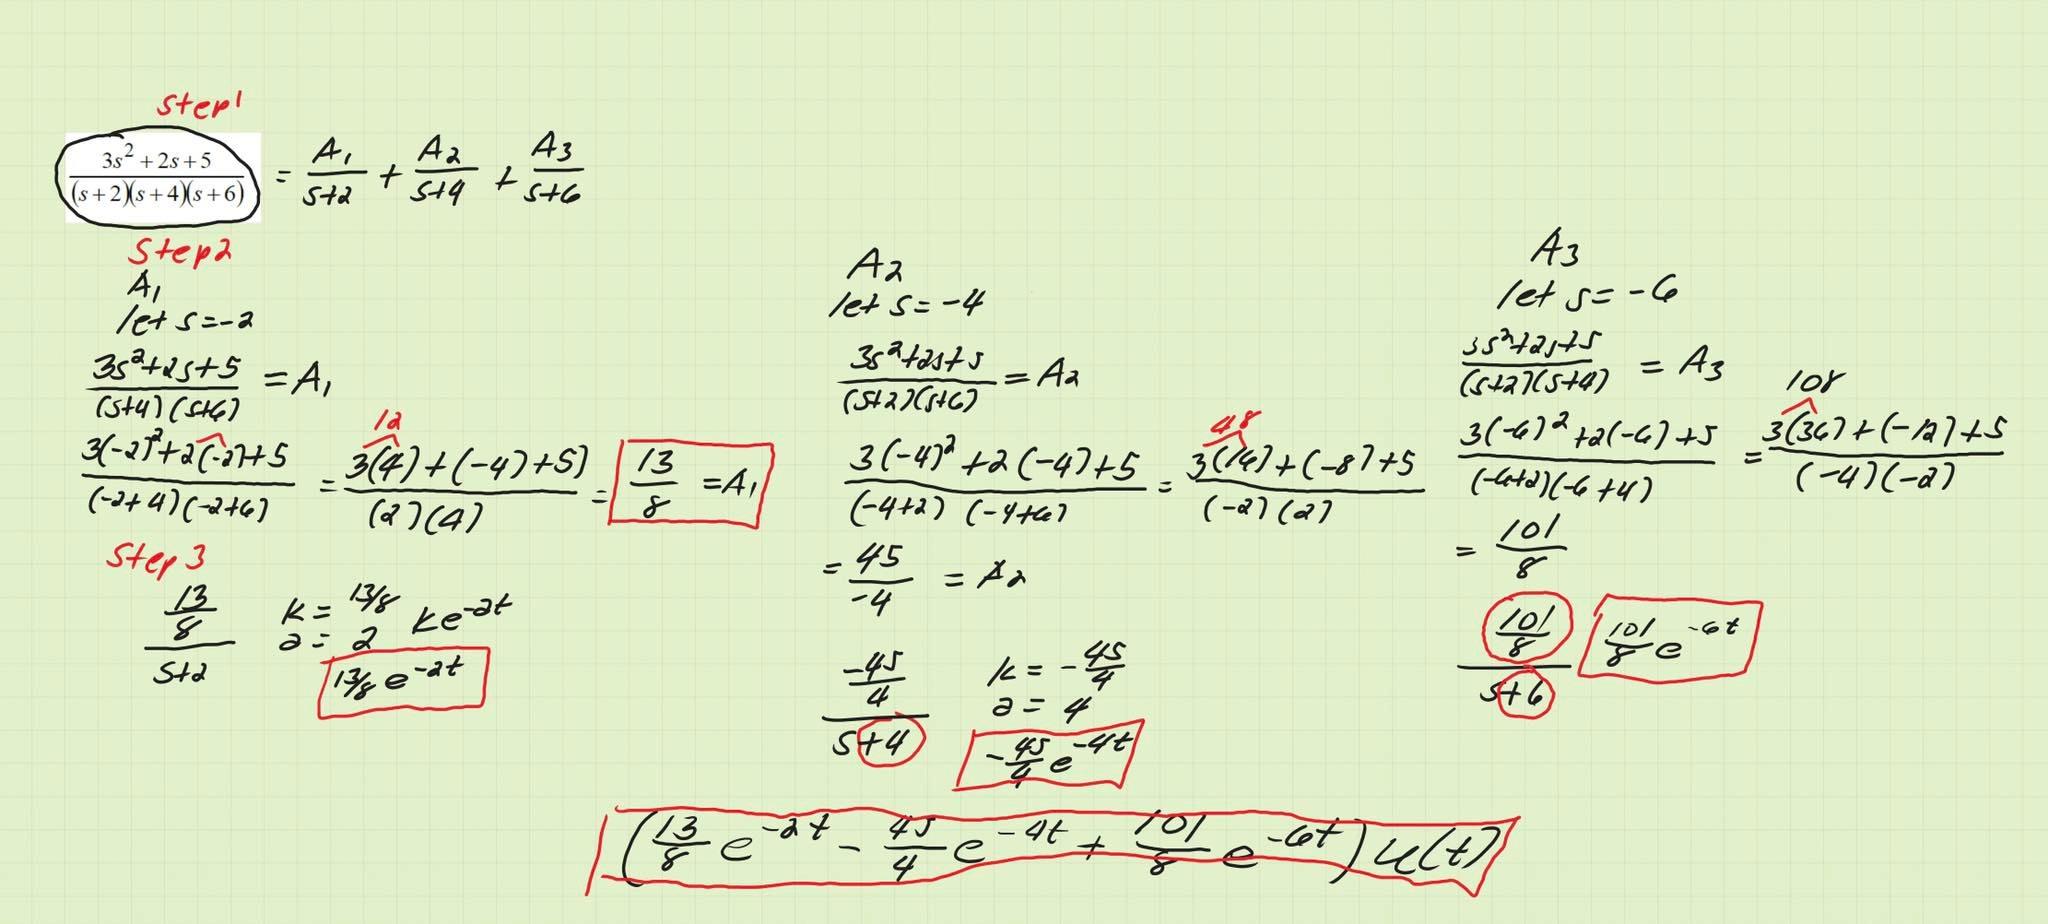 step1
(3s^2+2s+5)/((s+2)(s+4)(s+6)) = A₁/(s+2) + A₂/(s+4) + A₃/(s+6)
Step2
A₁
let s=-2
(3s²+2s+5)/((s+4)(s+6)) = A₁
(3(-2)²+2(-2)+5)/((-2+4)(-2+6)) = (3(4)+(-4)+5)/((2)(4)) = 13/8 = A₁
12
Step 3
(13/8)/(s+2)
k = 13/8 ke^(-2t)
a = 2
13/8 e^(-2t)
A₂
let s=-4
(3s²+2s+5)/((s+2)(s+6)) = A₂
(3(-4)²+2(-4)+5)/((-4+2)(-4+6)) = (3(16)+(-8)+5)/((-2)(2))
48
= 45/-4 = A₂
(-45/4)/(s+4)
k = -45/4
a = 4
-45/4 e^(-4t)
A₃
let s=-6
(3s²+2s+5)/((s+2)(s+4)) = A₃
108
(3(-6)²+2(-6)+5)/((-6+2)(-6+4)) = (3(36)+(-12)+5)/((-4)(-2))
= 101/8
(101/8)/(s+6)
101/8 e^(-6t)
(13/8 e^(-2t) - 45/4 e^(-4t) + 101/8 e^(-6t)) u(t)